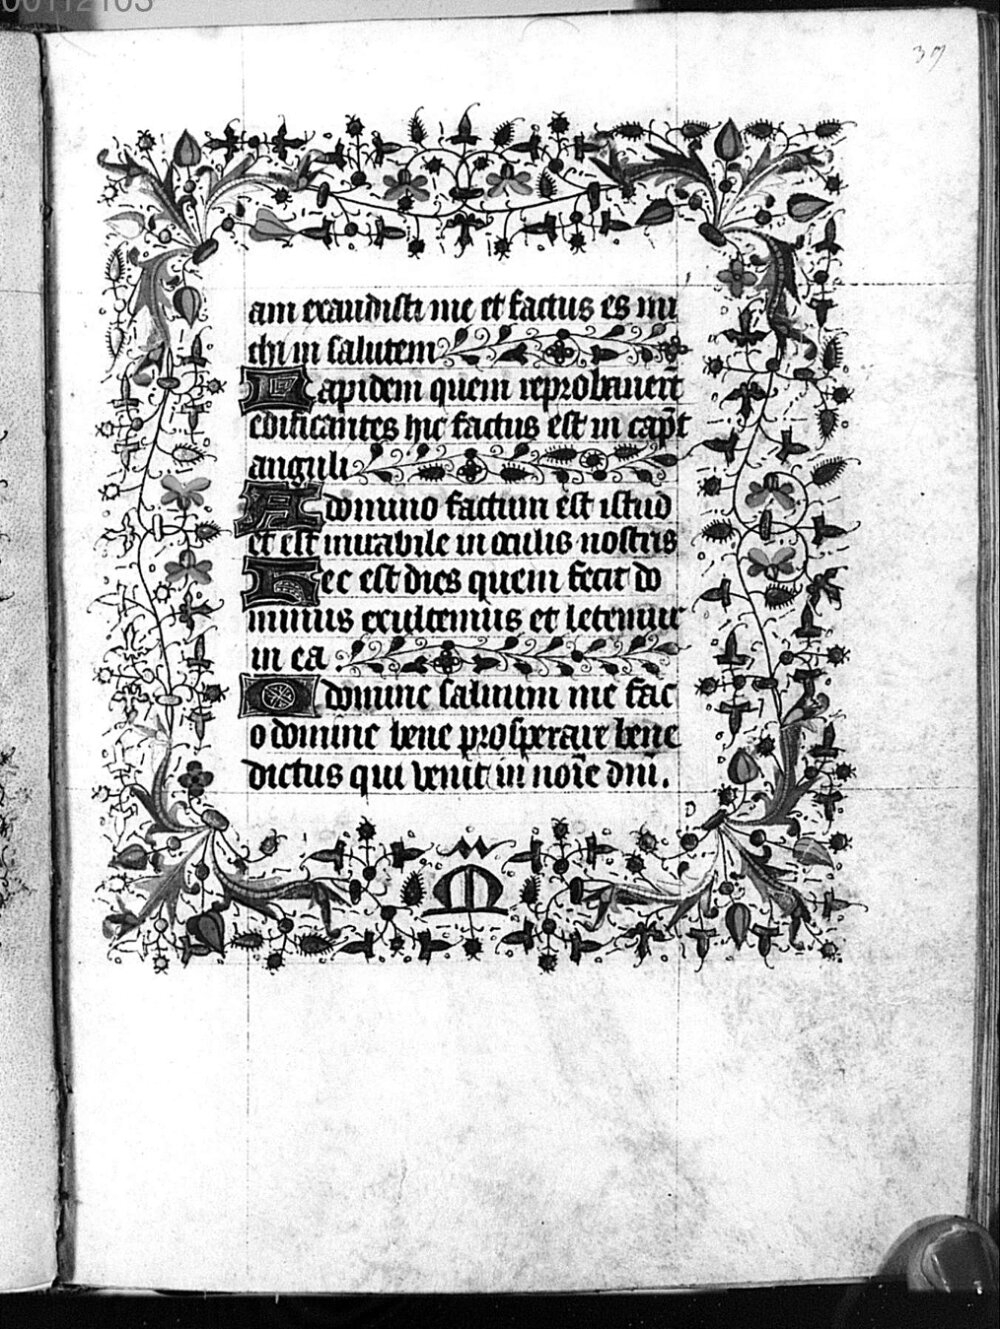 00112103
37
am exaudisti me et factus es mi
chi in salutem
Lapidem quem reprobauerūt
edificantes hic factus est in cap̄t
anguli
A domino factum est istud
et est mirabile in oculis nostris
Hec est dies quem fecit do
minus exultemus et letemur
in ea.
O domine saluum me fac
o domine bene prosperare bene
dictus qui venit in noīe dn̄i.
M